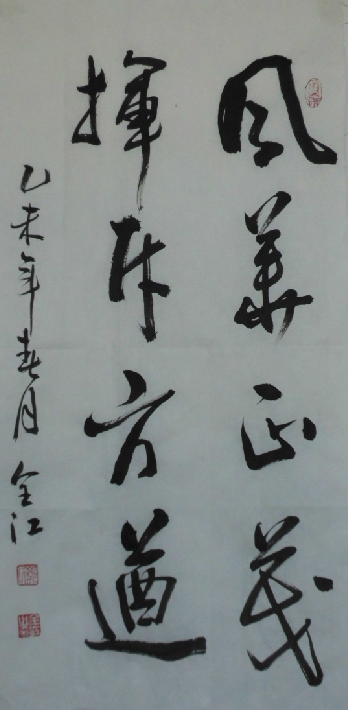 風華正茂
揮斥方遒
乙未年春月 全江